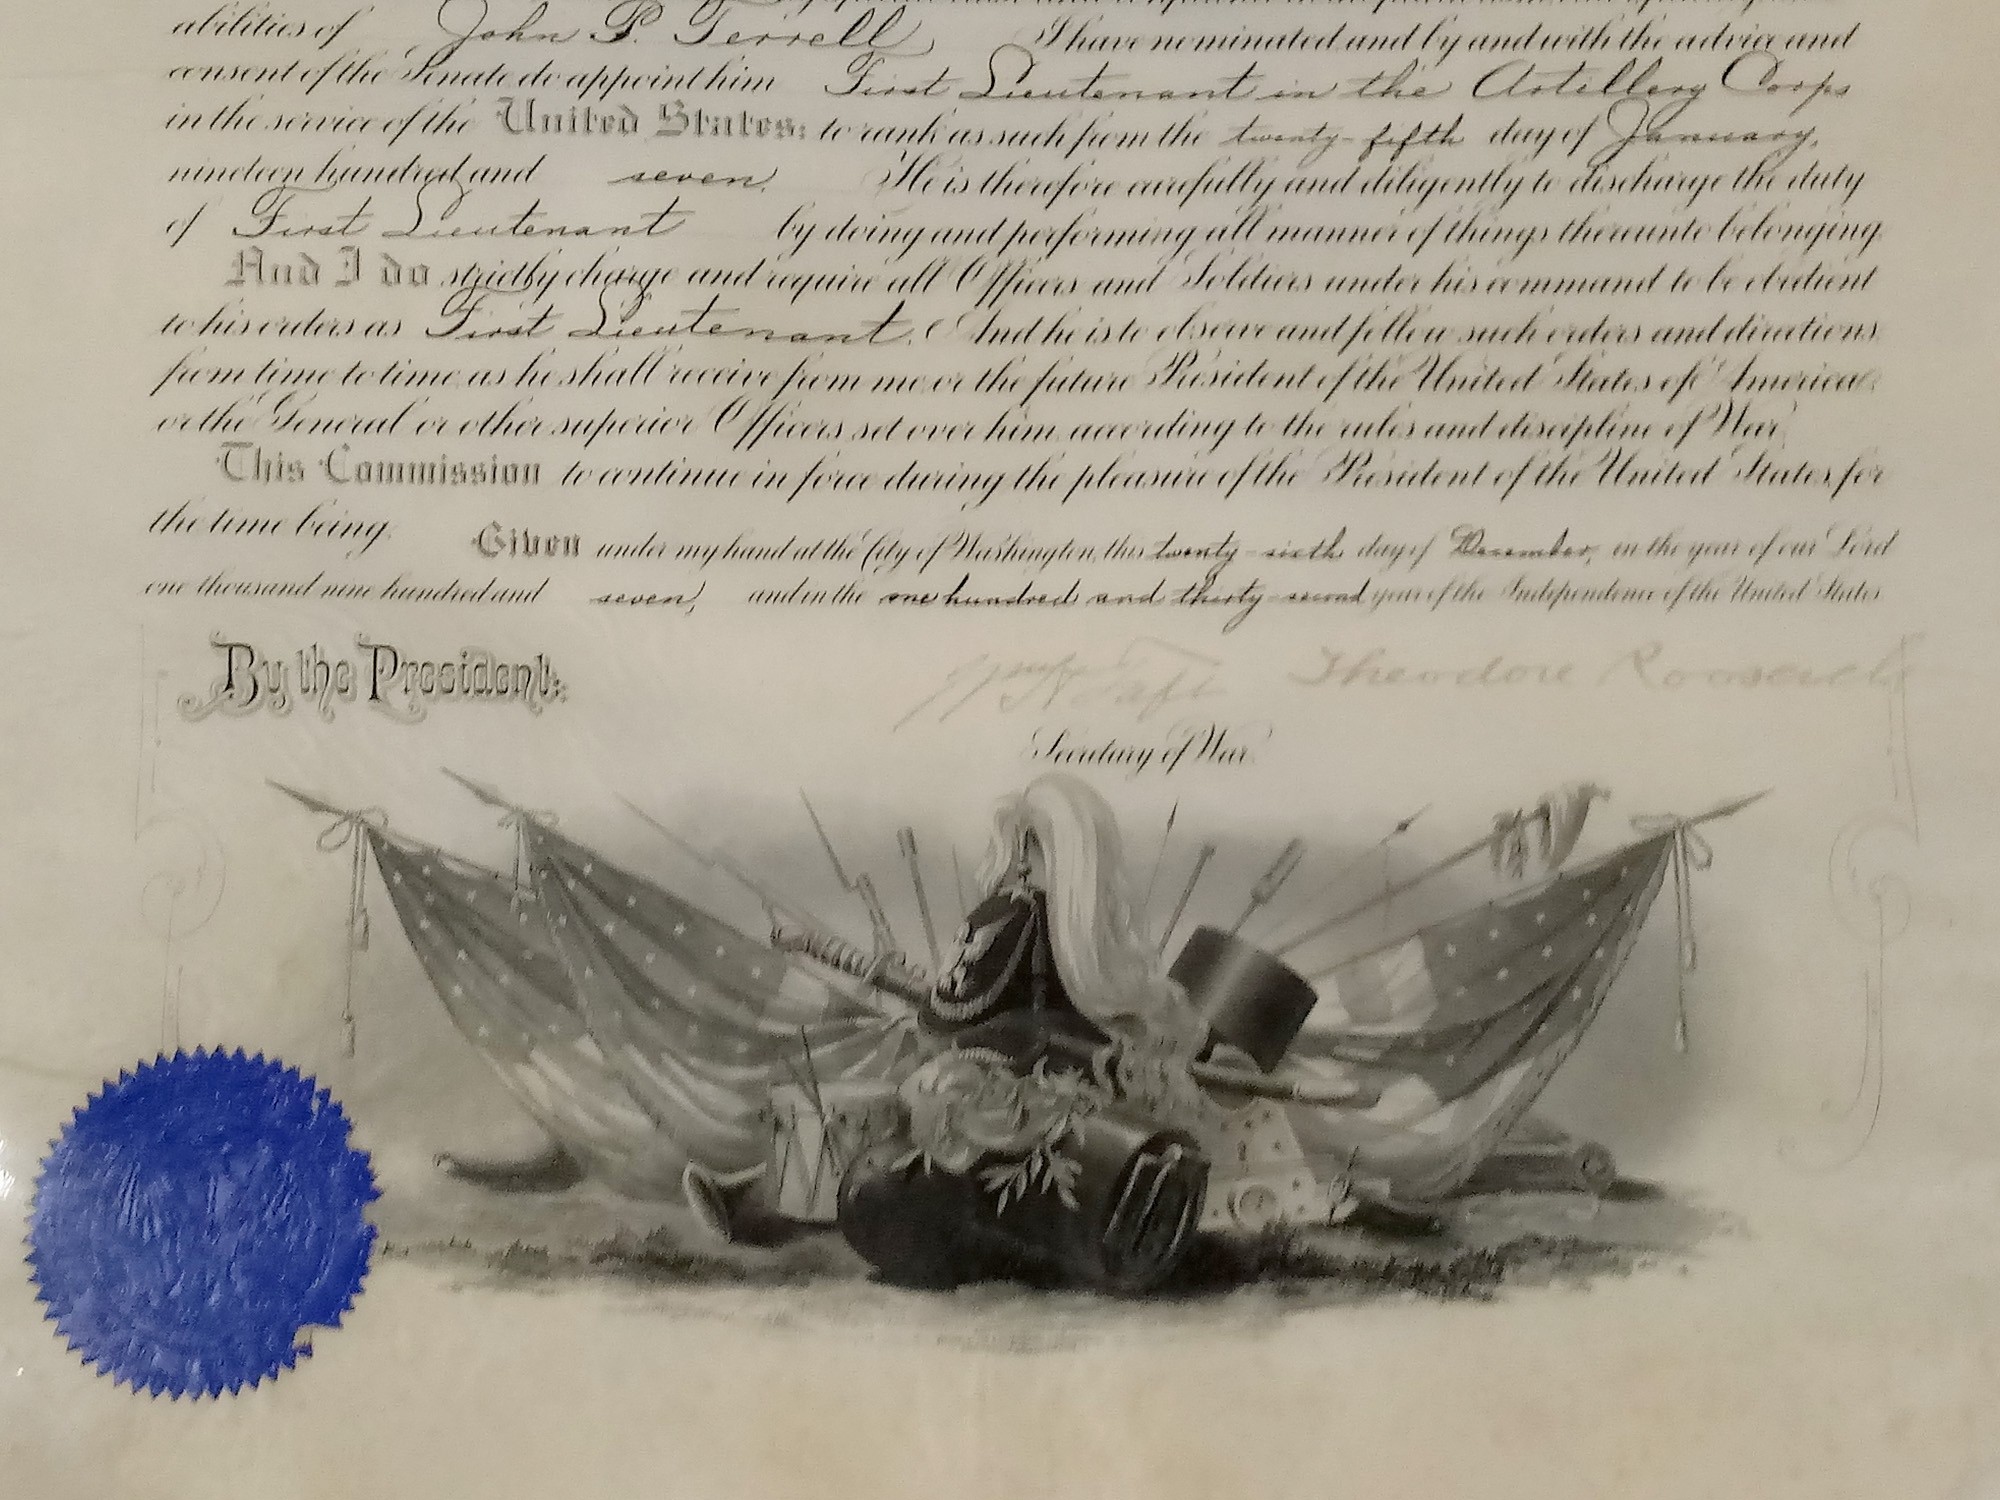 abilities of John P. Terrell, I have nominated and by and with the advice and
consent of the Senate do appoint him First Lieutenant in the Artillery Corps
in the service of the United States: to rank as such from the twenty-fifth day of January,
nineteen hundred and seven. He is therefore carefully and diligently to discharge the duty
of First Lieutenant by doing and performing all manner of things thereunto belonging.
And I do strictly charge and require all Officers and Soldiers under his command to be obedient
to his orders as First Lieutenant. And he is to observe and follow such orders and directions,
from time to time, as he shall receive from me, or the future President of the United States of America,
or the General or other superior Officers set over him, according to the rules and discipline of War.
This Commission to continue in force during the pleasure of the President of the United States, for
the time being.
Given under my hand at the City of Washington, this twenty-sixth day of December, in the year of our Lord
one thousand nine hundred and seven, and in the one hundred and thirty-second year of the Independence of the United States.
By the President:
Wm H Taft
Theodore Roosevelt
Secretary of War.